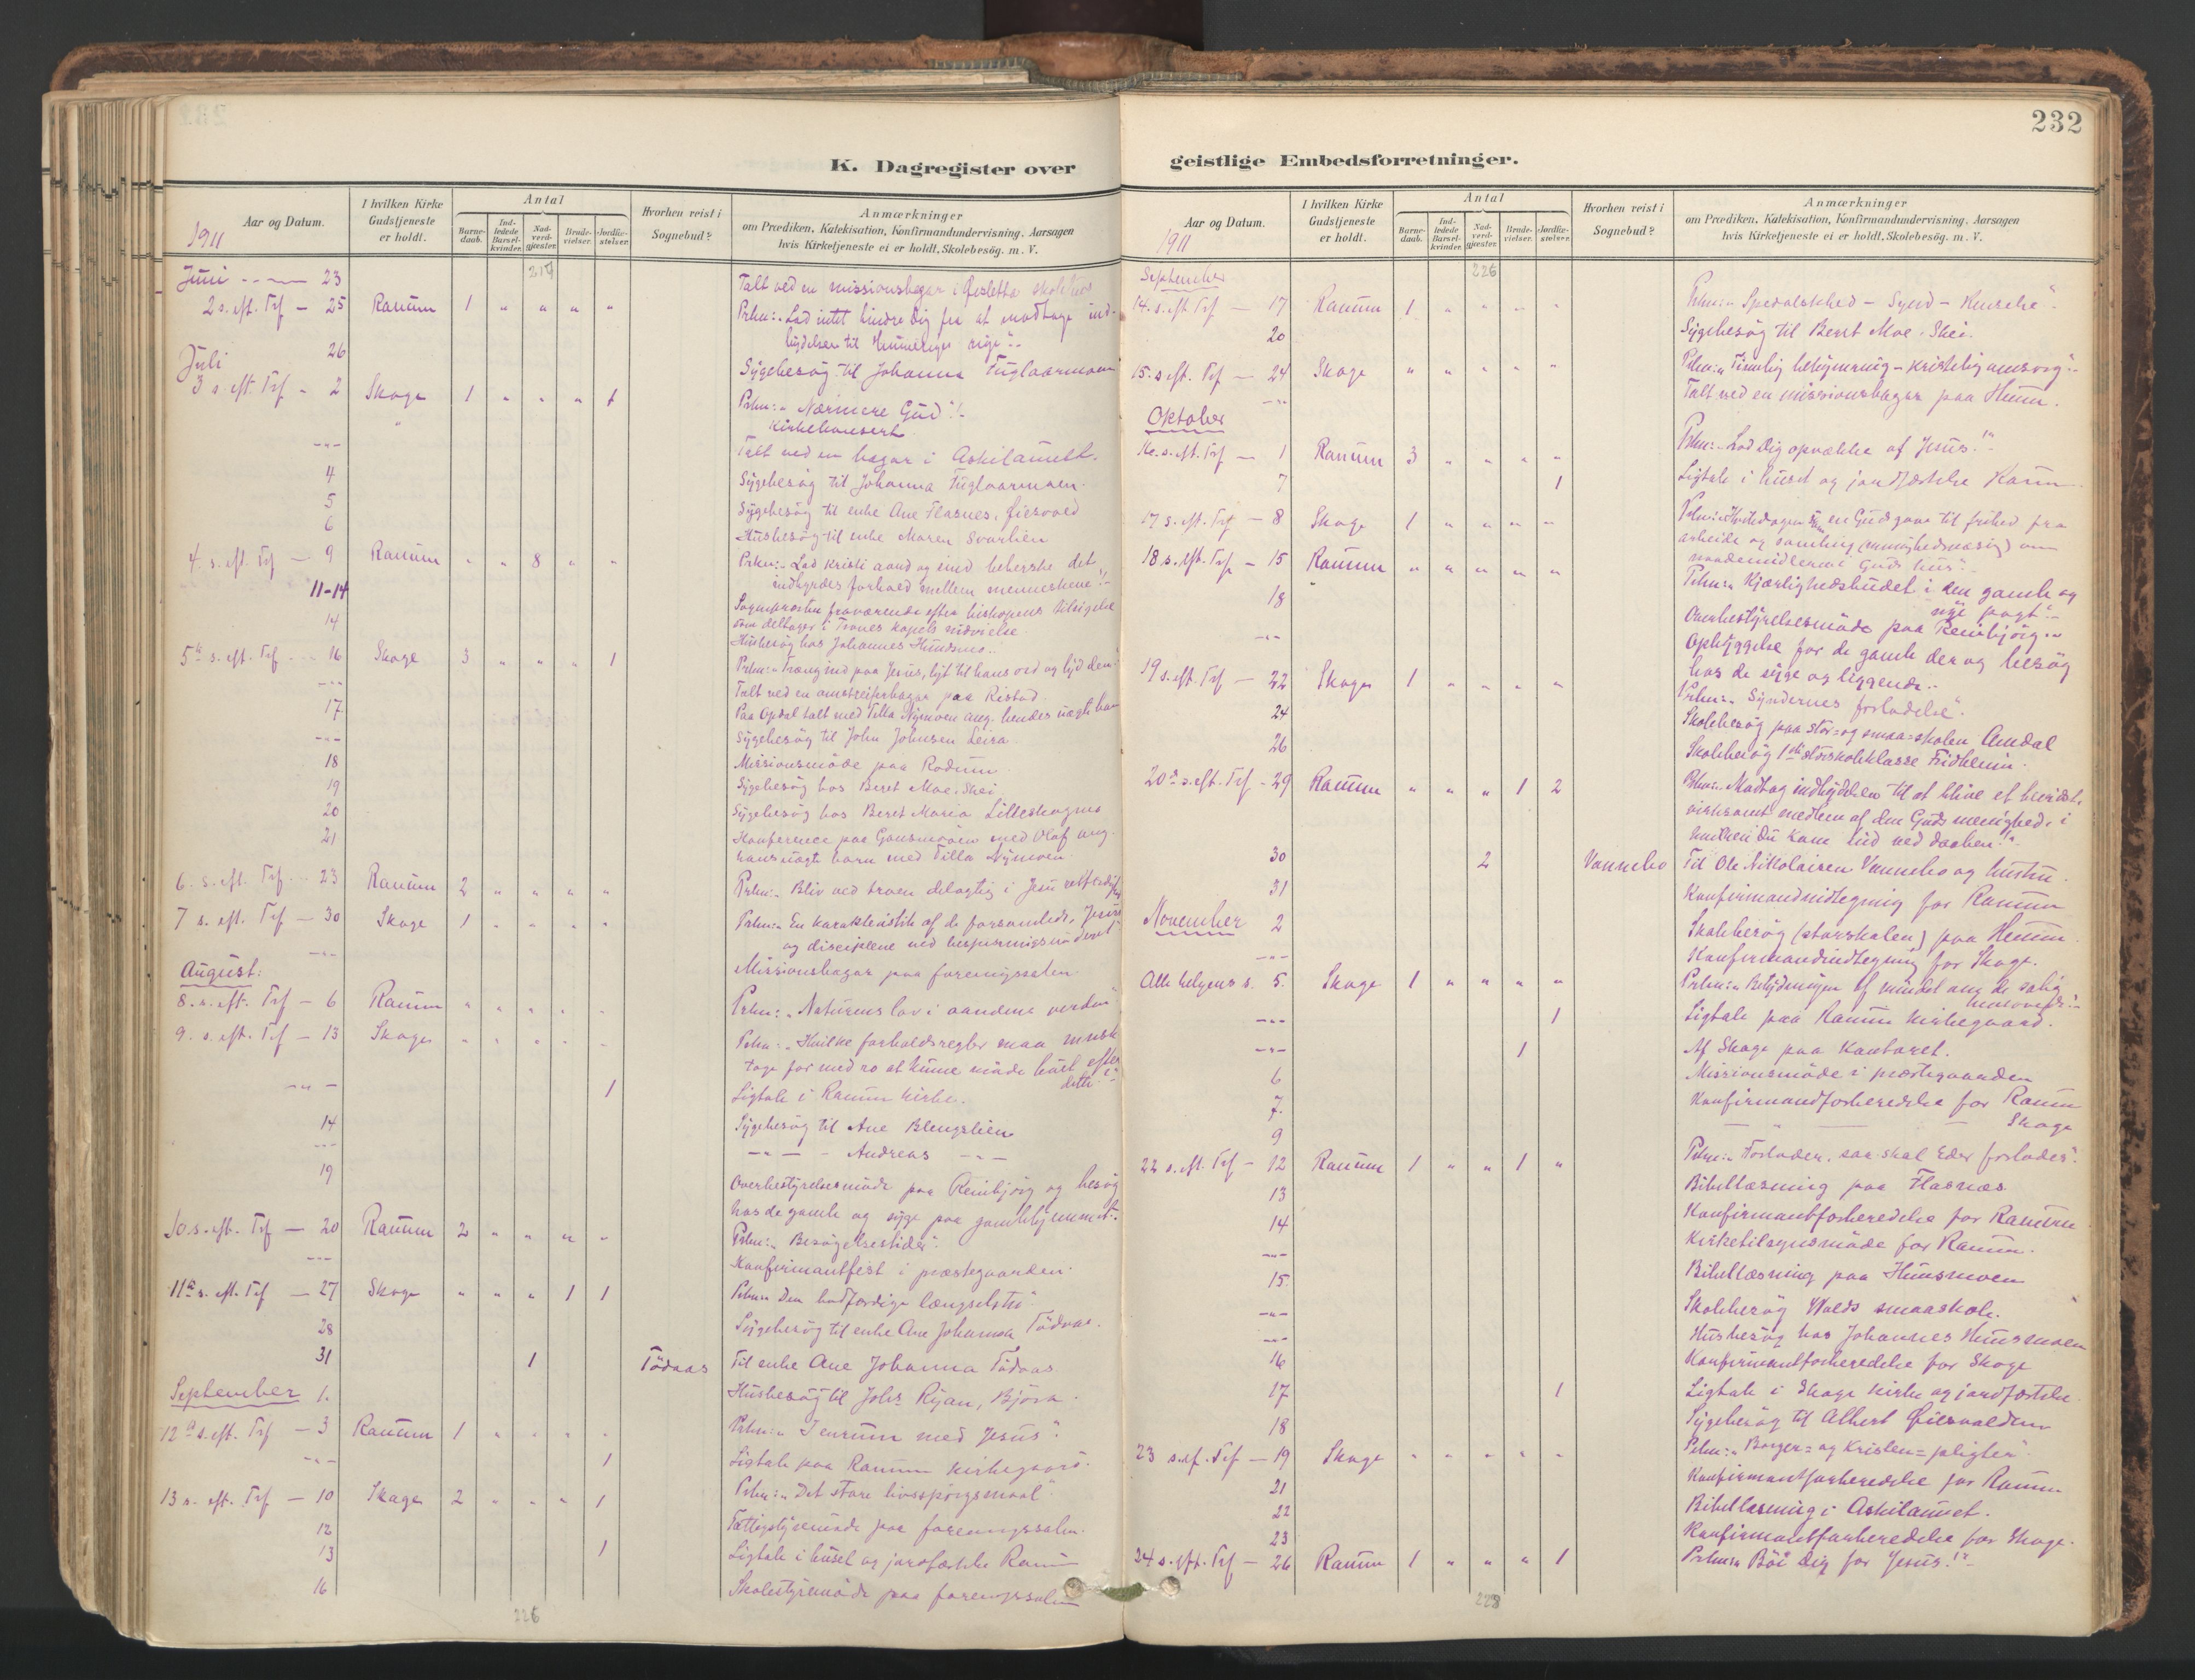 232
K. Dagregister over
geistlige Embedsforretninger.
Aar og Datum.
1911
I hvilken Kirke Gudstjeneste er holdt.
Antal
Barne-daab.
Ind-ledede Barsel-kvinder.
Nad-verd-gjæster.
Brude-vielser.
Jordfæ-stelser.
Hvorhen reist i Sognebud?
Anmærkninger
om Prædiken, Katekisation, Konfirmandundervisning, Aarsagen
hvis Kirketjeneste ei er holdt, Skolebesøg. m. V.
Juni 23 Talt ved en missionsbasar i
2 s. eft. Trf - 25 Ranum 1 " " " " Prken: "Lad intet hindre dig fra at modtage ind-
bydelsen til Himmeriges rige".
26 Sygebesøg til Johanna Fuglaarmoen
Juli
3 s. eft. Trf - 2 Skage 1 " " " 1 Prken: "Nærmere Gud".
" Kirkekonsert
-"- Talt ved en basar i Askilamett.
4 Sygebesøg til Johanna Fuglaarmoen.
5 Sygebesøg til enke Ane Flasnes,
6 Husbesøg til enke Maren Svarlien
4. s. eft. Trf - 9 Ranum " " 8 " " Prken: "Lad Kristi aand og sind beherske det
indbyrdes forhold mellem menneskene".
11-14 Sogneprosten fraværende efter biskopens tilsigelse
som deltager i Trones kapels indvielse
14 Husbesøg hos Johannes Hunsmo.
5te s. eft. Trf - 16 Skage 3 " " " 1 Prken: "Træng ind paa Jesus, lyt til hans ord og lyd dem".
-"- Talt ved en omstreiferbasar paa Ristad.
17 Paa Opdal talt med Tilla Nymoen ang. hendes uægte barn
-"- Sygebesøg til John Johnsen Leira.
18 Missionsmøde paa Rodum.
19 Sygebesøg hos Beret Moe, Skei
20 Sygebesøg hos Beret Maria
21 Konference paa Gansmoen med Olaf ang.
hans uægte barn med Tilla Nymoen.
6. s. eft. Trf - 23 Ranum 2 " " " " Prken: "Bliv ved troen delagtig i Jesu retfærdighed
7 s. eft. Trf - 30 Skage 1 " " " " Prken: "En karakteristik af de forsamlede, Jesus
og disciplene ved bespisningsunderet"
-"- Missionsbasar paa foreningssalen.
August:
8. s. eft. Trf - 6 Ranum " " " " " Prken: "Naturens lov i aandens verden"
9. s. eft. Trf - 13 Skage " " " " " Prken: "Hvilke forholdsregler maa mnsk
tage for med ro at kunne møde livet efter
dette".
-"- 1 Ligtale i Ranum kirke.
14 Sygebesøg til Ane Blengslien
-"- -"- Andreas -"-
19 Overbestyrelsesmøde paa Reinbjørg og besøg
hos de gamle og syge paa gamlehjemmet.
10 s. eft. Trf - 20 Ranum 2 " " " " Prken: "Besøgelsestider".
-"- Konfirmantfest i præstegaarden.
11te s. eft. Trf - 27 Skage " " " 1 1 Prken: "Den bodfærdige længselstro".
28 Sygebesøg til enke Ane Johanna Tødaas.
31 1 Tødaas Til enke Ane Johanna Tødaas
September 1. Husbesøg til Johs Ryan, Bjøra.
12te s. eft. Trf - 3 Ranum 1 " " " " Prken: "I enrum med Jesus".
-"- 1 Ligtale paa Ranum kirkegaard.
13 s. eft. Trf - 10 Skage 2 " " " 1 Prken: "Det store livsspørgsmaal".
12 Fattigstyremøde paa foreningssalen.
13 1 Ligtale i huset og jordfæstelse Ranum
16 Skolestyremøde paa foreningssalen
226
Aar og Datum.
1911
I hvilken Kirke Gudstjeneste er holdt.
Antal
Barne-daab.
Ind-ledede Barsel-kvinder.
Nad-verd-gjæster.
Brude-vielser.
Jordfæ-stelser.
Hvorhen reist i Sognebud?
Anmærkninger
om Prædiken, Katekisation, Konfirmandundervisning, Aarsagen
hvis Kirketjeneste ei er holdt, Skolebesøg. m. V.
September 226
14. s. eft Trf - 17 Ranum 1 " " " " Prken: "Spedalskhed - Synd - Renselse".
20 Sygebesøg til Beret Moe. Skei.
15. s eft. Trf - 24 Skage " " " " " Prken: "Timelig bekymring - kristelig omsorg".
-"- Talt ved en missionsbasar paa Hunn.
Oktober
16. s. eft. Trf - 1 Ranum 3 " " " " Prken: "Lad dig opvække af Jesus!"
7 1 Ligtale i huset og jordfæstelse Ranum
17 s. eft. Trf - 8 Skage 1 " " " " Prken: "Hviledagen en Guds gave til frihed fra
arbeide og samling (menighedsvis) om
naademidlerne i Guds hus".
18 s. eft. Trf - 15 Ranum " " " " " Prken: "Kjærlighedsbudet i den gamle og
nye pagt".
18 Overbestyrelsesmøde paa Reinbjørg.
-"- Opbyggelse for de gamle der og besøg
hos de syge og liggende.
19 s. eft. Trf - 22 Skage 1 " " " " Prken: "Syndernes forladelse".
24 Skolebesøg paa stor- og smaa-skolen, Amdal
26 Skolebesøg 1ste storskoleklasse Fridheim.
20de s. eft. Trf - 29 Ranum " " " 1 2 Prken: "Modtag indbydelsen til at blive et bevidst,
virksomt medlem af den Guds menighed, i
hvilken du kom ind ved daaben!"
30 2 Vannebo Til Ole Nikolaisen Vannebo og hustru.
31 Konfirmandindtegning for Ranum
November 2 Skolebesøg (storskolen) paa Hunn.
-"- Konfirmandindtegning for Skage.
Alle helgens s. 5. Skage 1 " " " " Prken: "Betydningen af mindet om de salig
hensovede".
-"- 1 Ligtale paa Ranum kirkegaard.
-"- 1 Af Skage paa kontoret.
6 Missionsmøde i præstegaarden
7. Konfirmandforberedelse for Ranum
9 - " - - Skage
22 s. eft. Trf - 12 Ranum 1 " " 1 " Prken: "Forlader, saa skal Eder forlades".
13 Bibellæsning paa Flasnæs
14 Konfirmantforberedelse for Ranum
-"- Kirketilsynsmøde for Ranum.
15. Bibellæsning paa Hunsmoen
-"- Skolebesøg Wolds smaaskole.
-"- Husbesøg hos Johannes Hunsmoen
16 Konfirmantforberedelse for Skage
17 1 Ligtale i Skage kirke og jordfæstelse.
18 Sygebesøg til Albert
23 s. ef. Trf - 19 Skage " " " " " Prken: "Borger= og Kristen=pligter".
21 Konfirmantforberedelse for Ranum
22 Bibellæsning i Askilamet.
23 Konfirmantforberedelse for Skage.
24 s. eft. Trf - 26 Ranum 1 " " " 1 Prken: "Bøi dig for Jesus!"
228